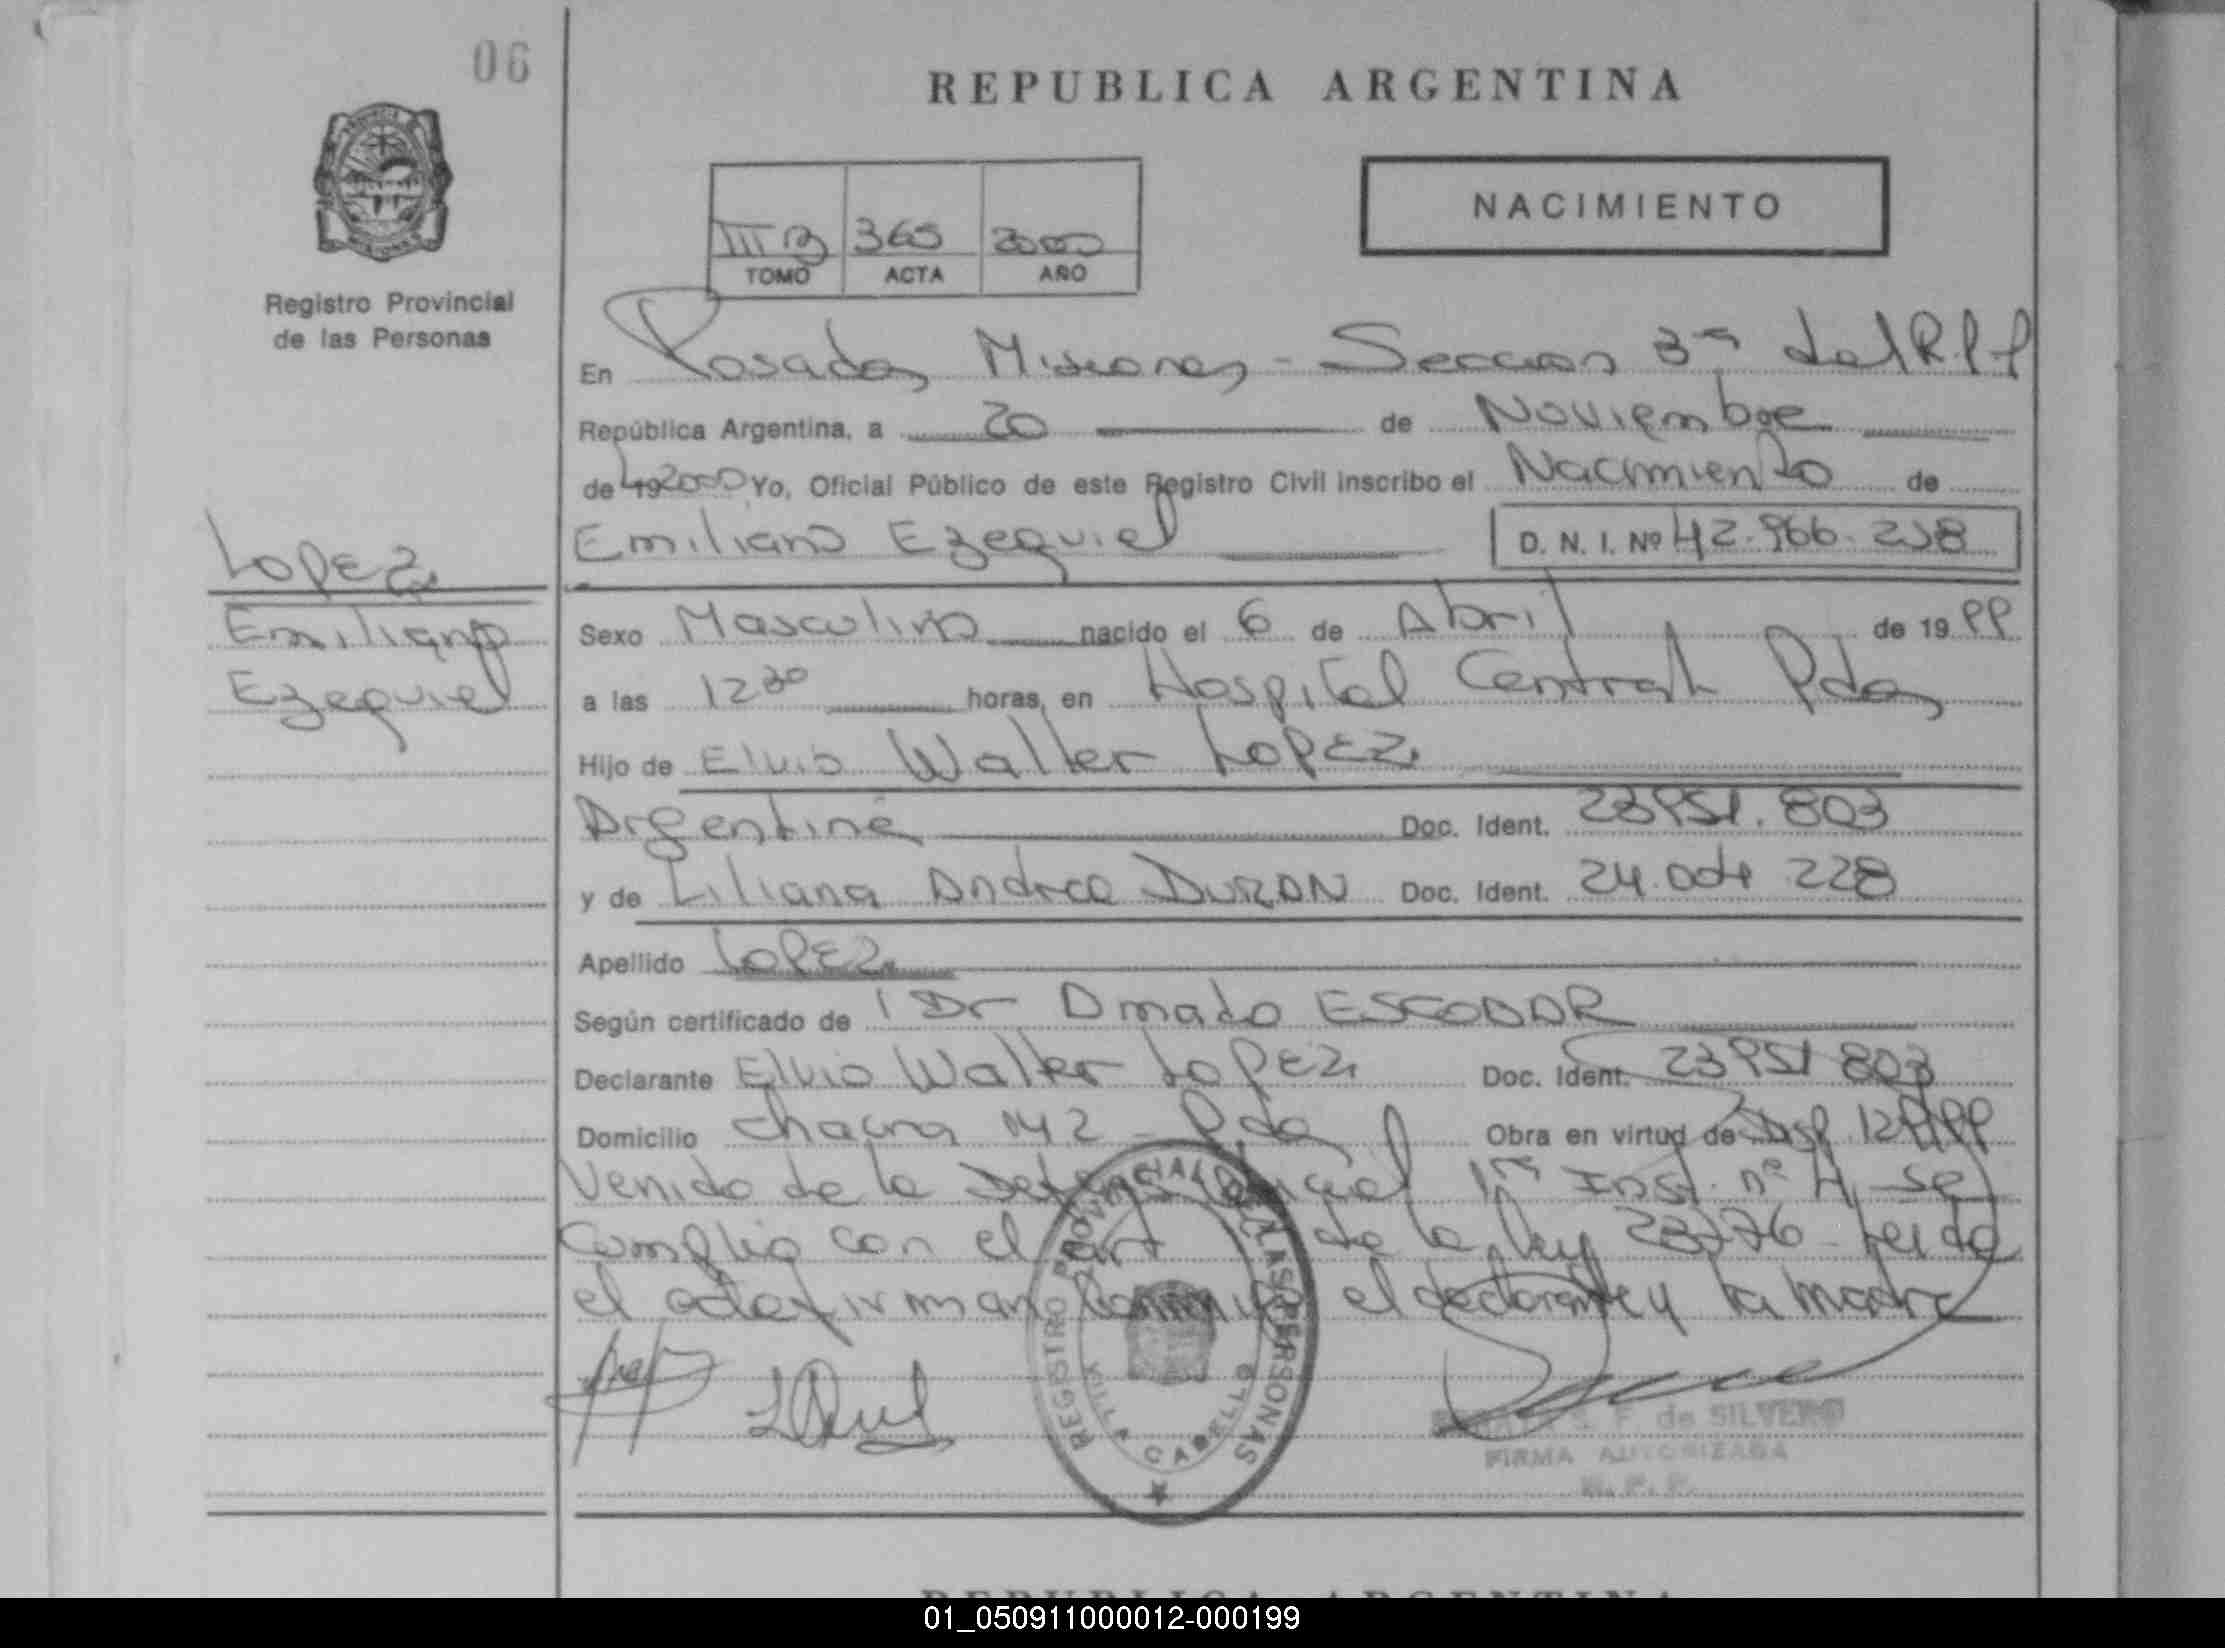 06
REPUBLICA ARGENTINA
NACIMIENTO
III B 365 2000
TOMO ACTA AÑO
Registro Provincial
de las Personas
En Posadas Misiones - Seccion 3ª del R.P.P
República Argentina, a 20 de Noviembre
de 19 2000 Yo, Oficial Público de este Registro Civil inscribo el Nacimiento de
Emiliano Ezequiel D. N. I. Nº 42.966.238
LOPEZ
Emiliano
Ezequiel
Sexo Masculino nacido el 6 de Abril de 19 99
a las 12 30 horas, en Hospital Central Pdas
Hijo de Elvio Walter LOPEZ
Argentina Doc. Ident. 23951.803
y de Liliana Andrea DURAN Doc. Ident. 24.004.228
Apellido LOPEZ
Según certificado de Dr Amado ESCOBAR
Declarante Elvio Walter LOPEZ Doc. Ident. 23951803
Domicilio chacra 142 - Pdas Obra en virtud de Disp
Venido de la Oficial 1ra Inst. nº 4, se
Cumplio con el art 1 de la ley 23776 - Leida
el acta firman conmigo el declarante y la madre
REGISTRO PROVINCIAL DE LAS PERSONAS
VILLA CABELLO
S. F. de SILVERO
FIRMA AUTORIZADA
R. P. P.
REPUBLICA ARGENTINA
01_050911000012-000199